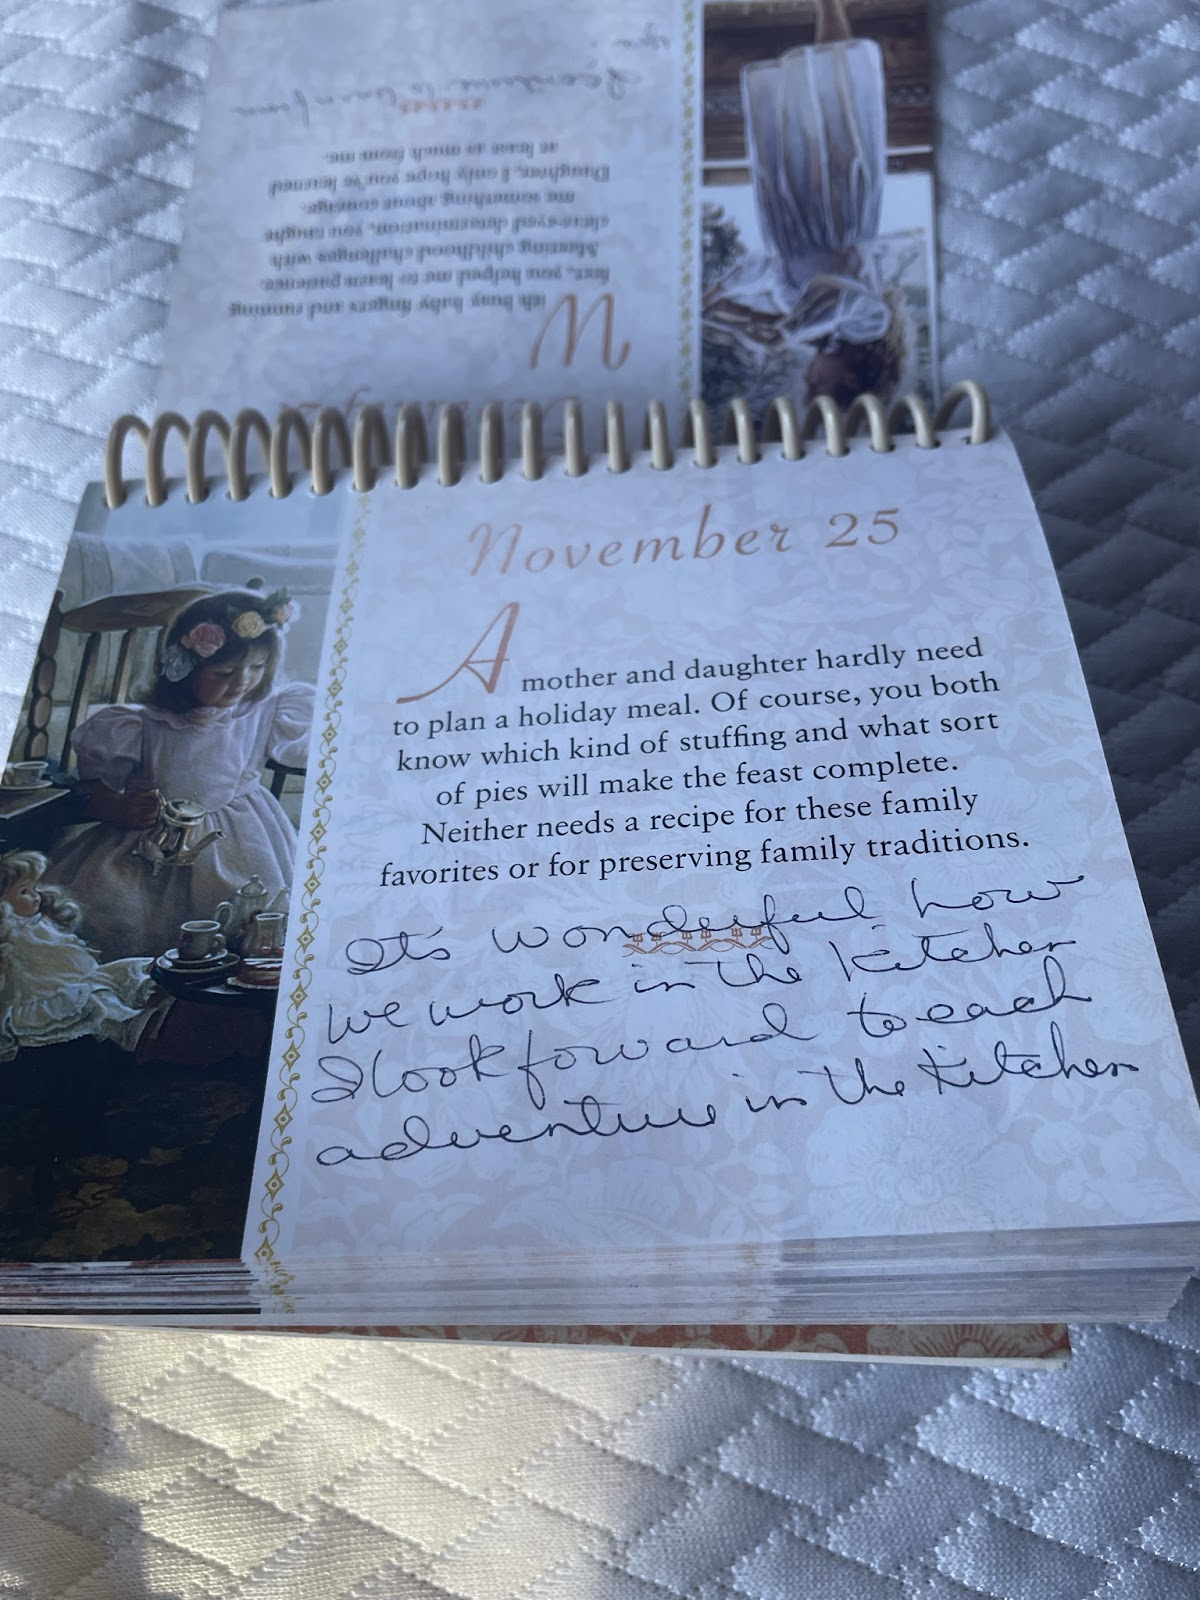 November 25
A mother and daughter hardly need
to plan a holiday meal. Of course, you both
know which kind of stuffing and what sort
of pies will make the feast complete.
Neither needs a recipe for these family
favorites or for preserving family traditions.
It's wonderful how
we work in the kitchen
I look forward to each
adventure in the kitchen
With busy baby fingers and running
feet, you helped me to learn patience.
Meeting childhood challenges with
clear-eyed determination, you taught
me something about courage.
Daughter, I only hope you've learned
at least as much from me.
I continue to learn from